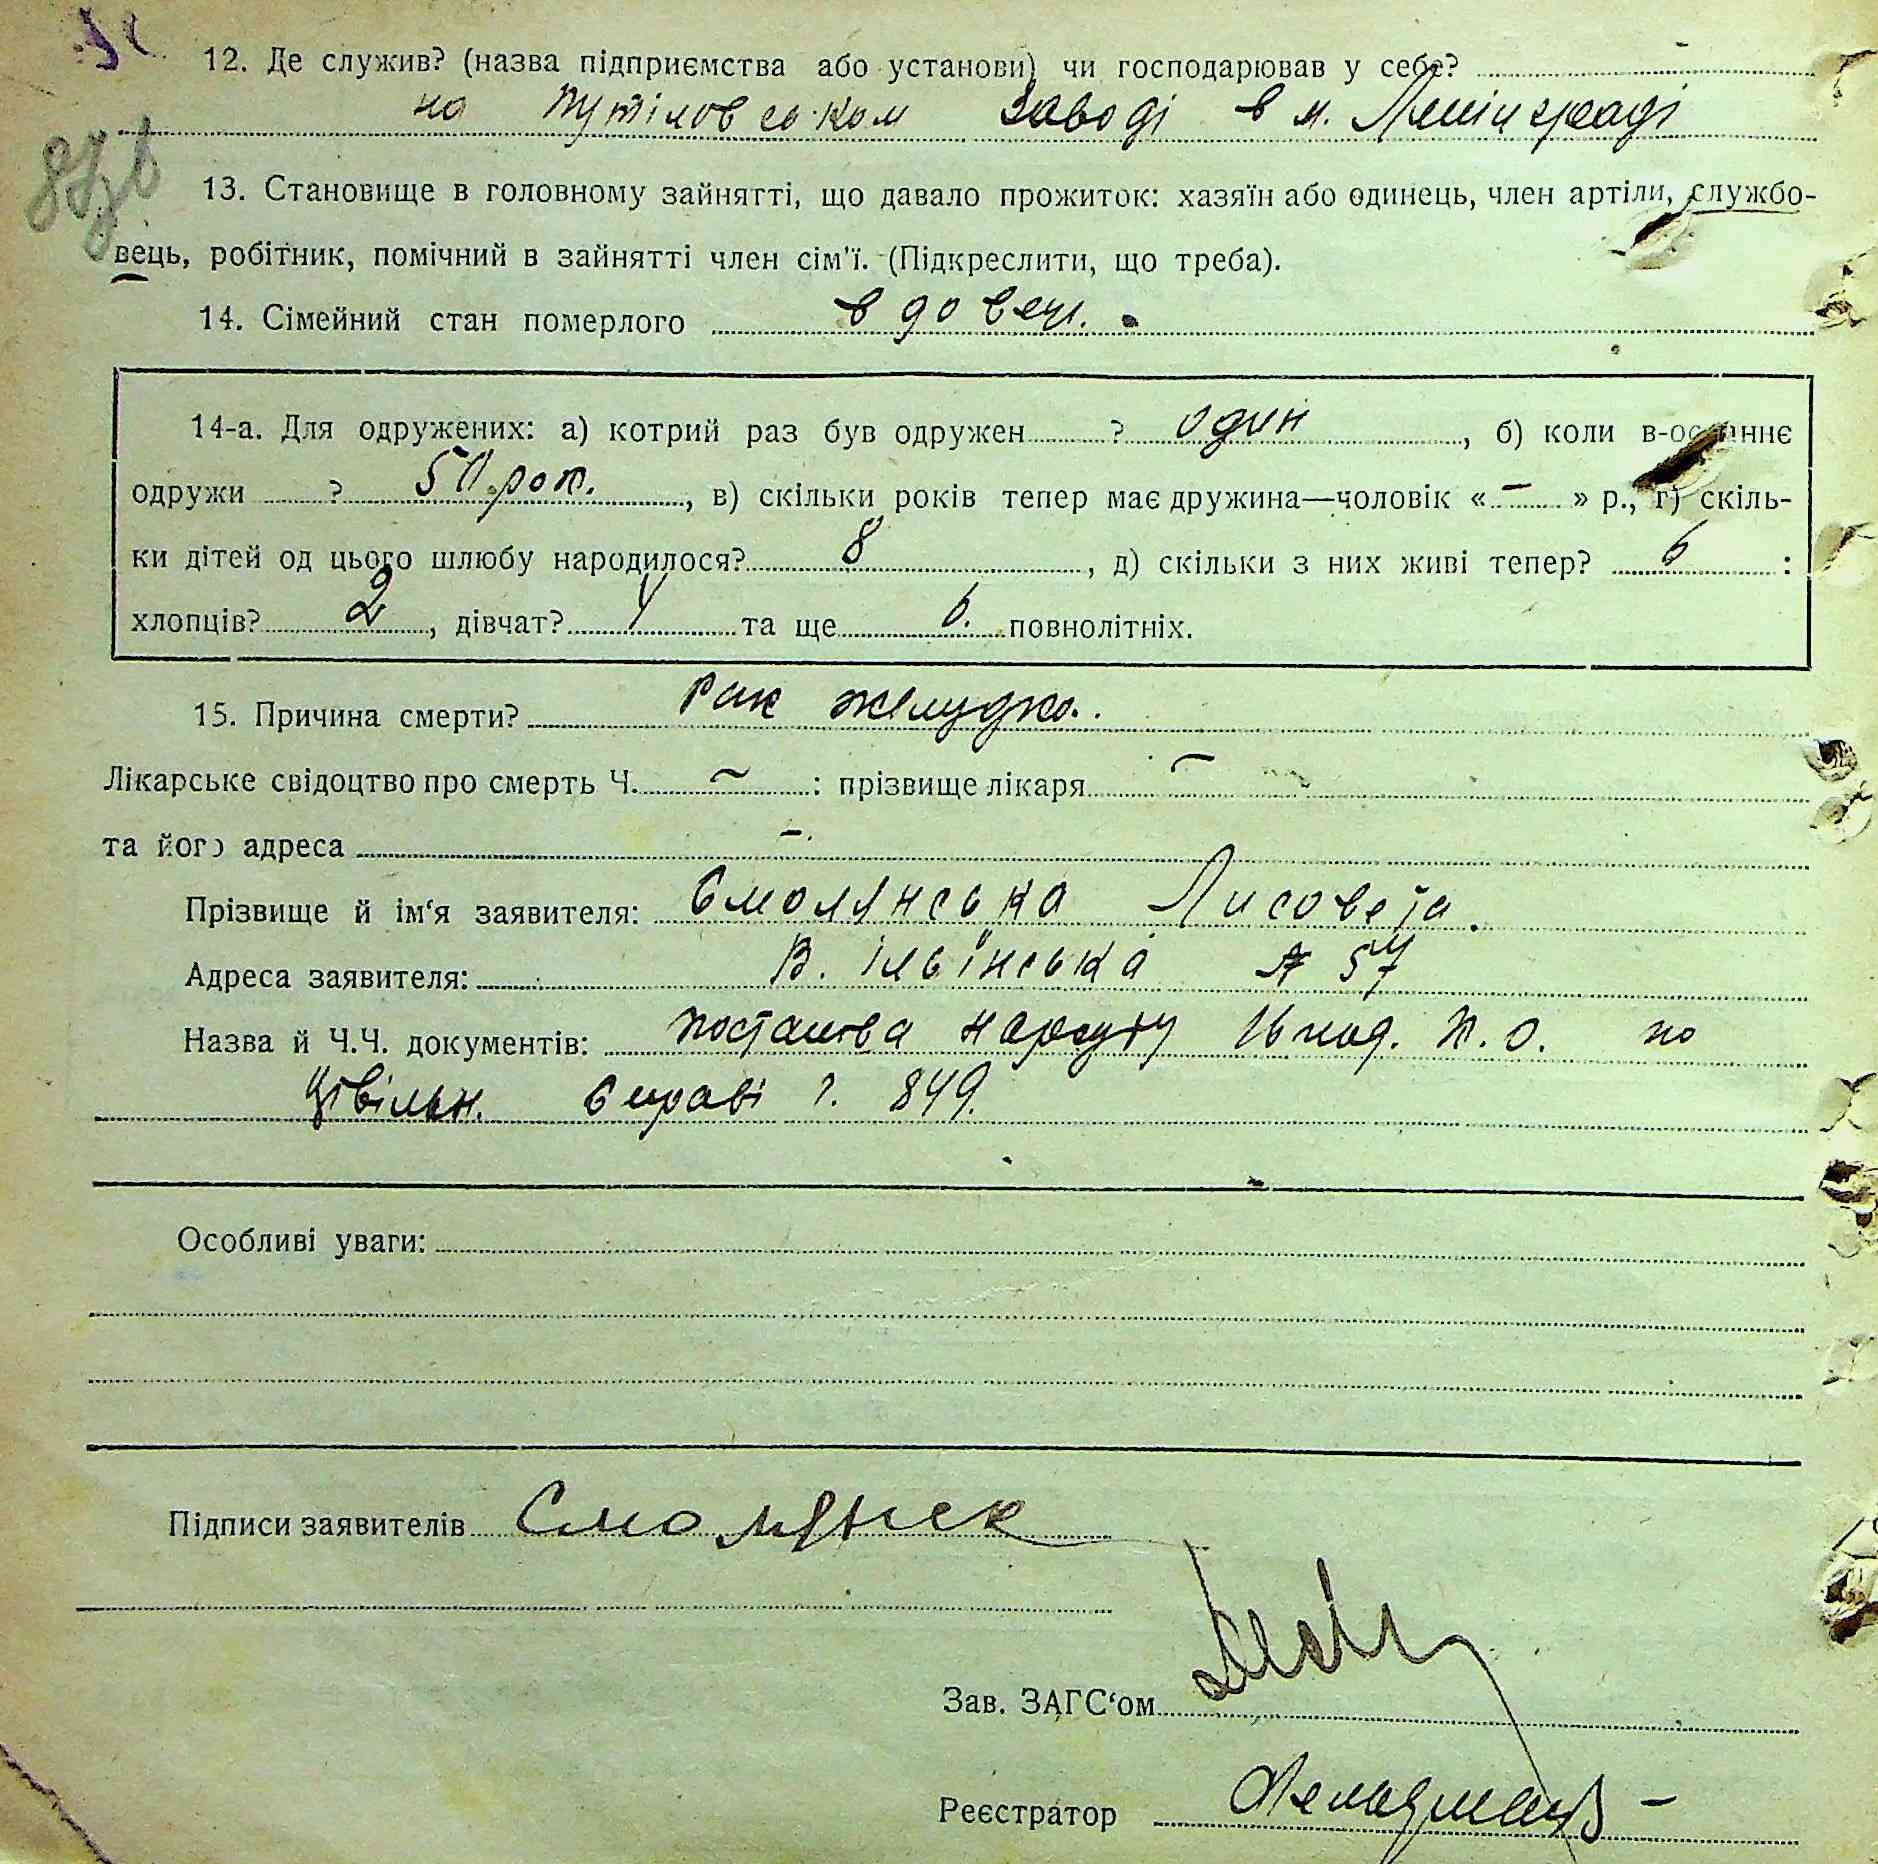 12. Де служив? (назва підприємства або установи) чи господарював у себе?
на Путіловському заводі в м. Ленінграді
13. Становище в головному зайнятті, що давало прожиток: хазяїн або одинець, член артіли, службо-
вець, робітник, помічний в зайнятті член сім'ї. (Підкреслити, що треба).
14. Сімейний стан померлого вдовець.
14-а. Для одружених: а) котрий раз був одружен ? один, б) коли в-останнє
одружи ? 50 рок., в) скільки років тепер має дружина—чоловік «–» р., г) скіль-
ки дітей од цього шлюбу народилося? 8, д) скільки з них живі тепер? 6 :
хлопців? 2, дівчат? 4 та ще 6. повнолітніх.
15. Причина смерти? Рак желудка.
Лікарське свідоцтво про смерть Ч. – : прізвище лікаря –
та його адреса –
Прізвище й ім'я заявителя: Смолянська Лисовета.
Адреса заявителя: В. Ільїнська № 57
Назва й Ч.Ч. документів: постанова нарсуду 16 К. О. по
цівільн. справі ч. 849.
Особливі уваги:
Підписи заявителів Смолянск
Зав. ЗАГС'ом
Реєстратор